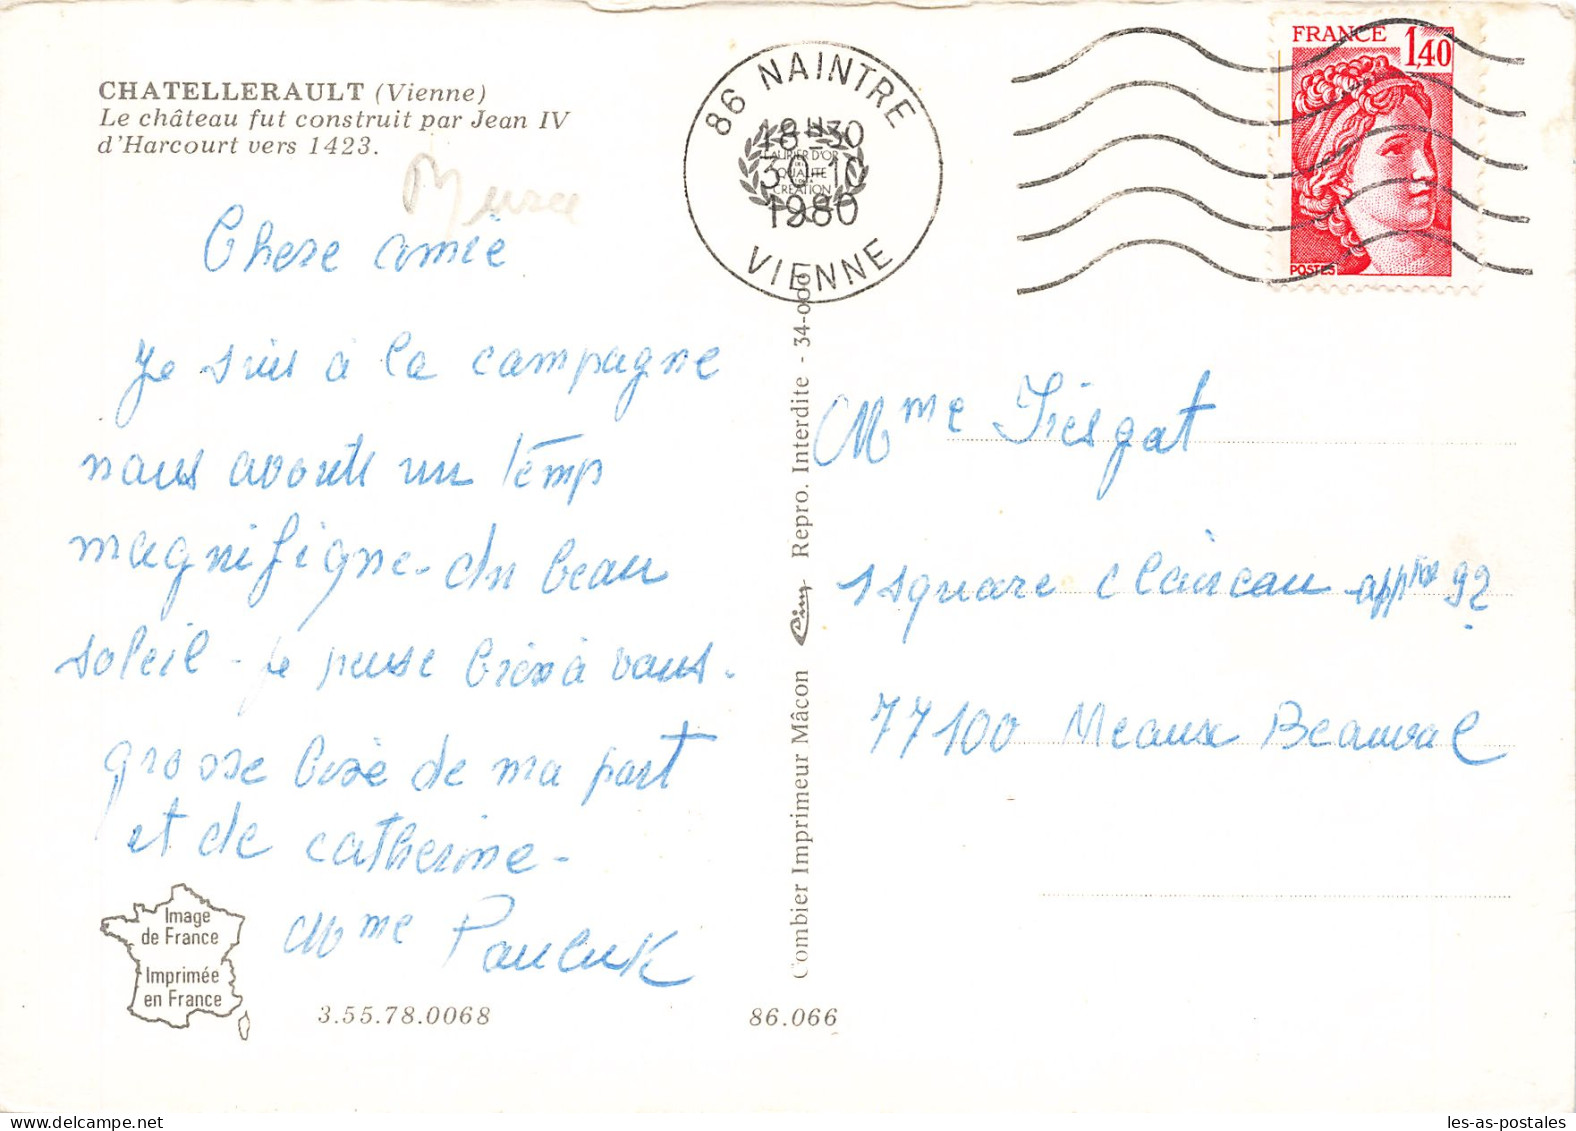 CHATELLERAULT (Vienne)
Le château fut construit par Jean IV
d'Harcourt vers 1423.
Chere amie
Je suis à la campagne
nous avons un temp
magnifigne - du beau
soleil - je pense bien à vous -
grosse bise de ma part
et de catherine -
Mme Pauluk
Image
de France
Imprimée
en France
3.55.78.0068
86.066
Combier Imprimeur Mâcon Cim Repro. Interdite - 34-000
86 NAINTRE
18H30
30-10
1980
VIENNE
LAURIER D'OR
QUALITE
CREATION
FRANCE
1,40
POSTES
Mme
1 square Claircau appt 92
77100 Meaux Beauval
les-as-postales